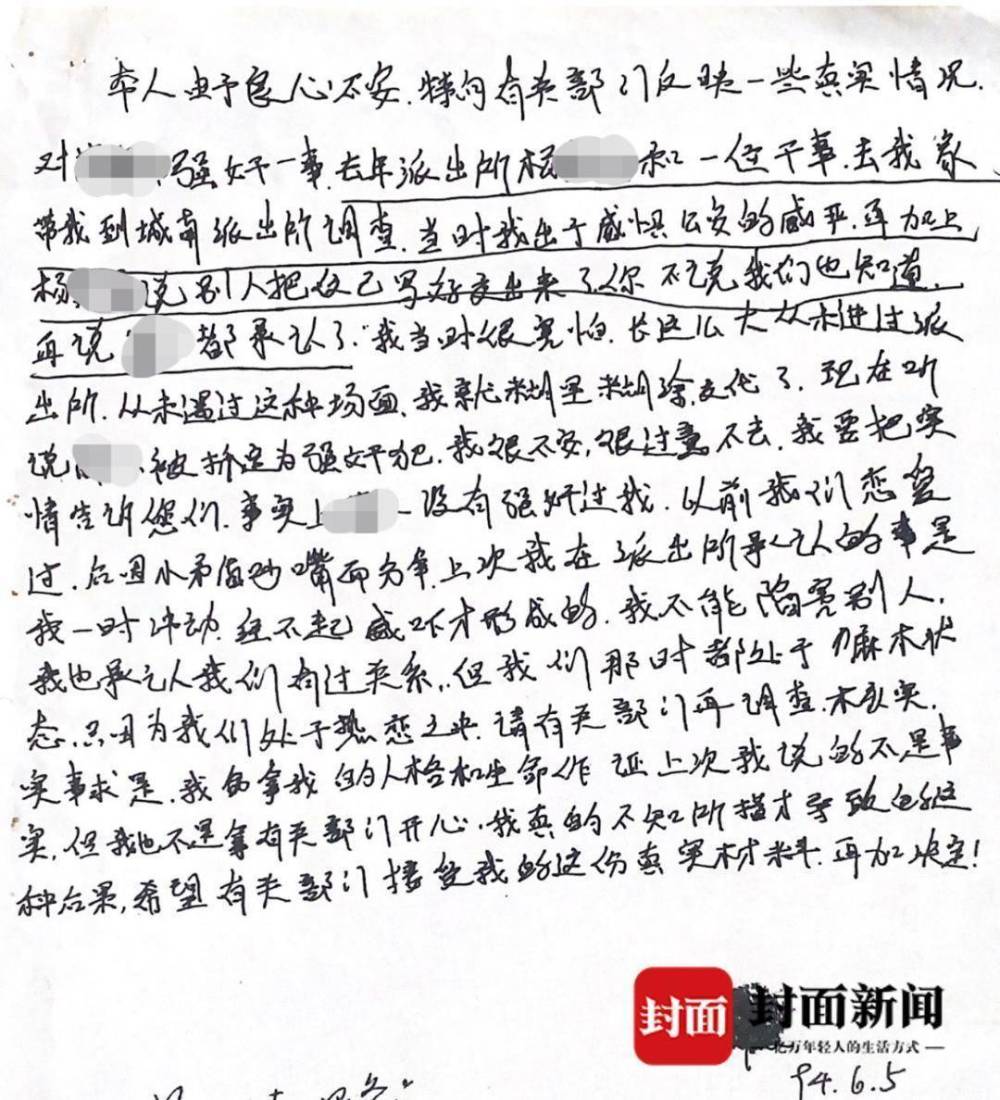 本人由于良心不安.特向有关部门反映一些真实情况.
对 强奸一事.去年派出所杨 和一位干事.去我家
带我到城南派出所调查.当时我出于威惧公安的威严.再加上
杨 说别人把收已写好交出来了.你不说我们也知道.
再说 都承认了.我当时很害怕.长这么大从未进过派
出所.从未遇过这种场面.我就糊里糊涂交代了.现在听
说 被拆定为强奸犯.我很不安,很过意不去.我要把实
情告诉您们.事实上 没有强奸过我.以前我们恋爱
过.后因小矛盾吵嘴而分争.上次我在派出所承认的事是
我一时冲动.经不起威吓才形成的.我不能陷害别人.
我也承认我们有过关系,.但我们那时都处于麻木状
态.只因为我们处于热恋之中.请有关部门再调查.求实.
实事求是.我向拿我的人格和生命作证上次我说的不是事
实,但我也不是拿有关部门开心.我真的不知所措才导致的这
种后果,希望有关部门接受我的这份真实材料.再加决定!
封面 封面新闻
亿万年轻人的生活方式
94.6.5